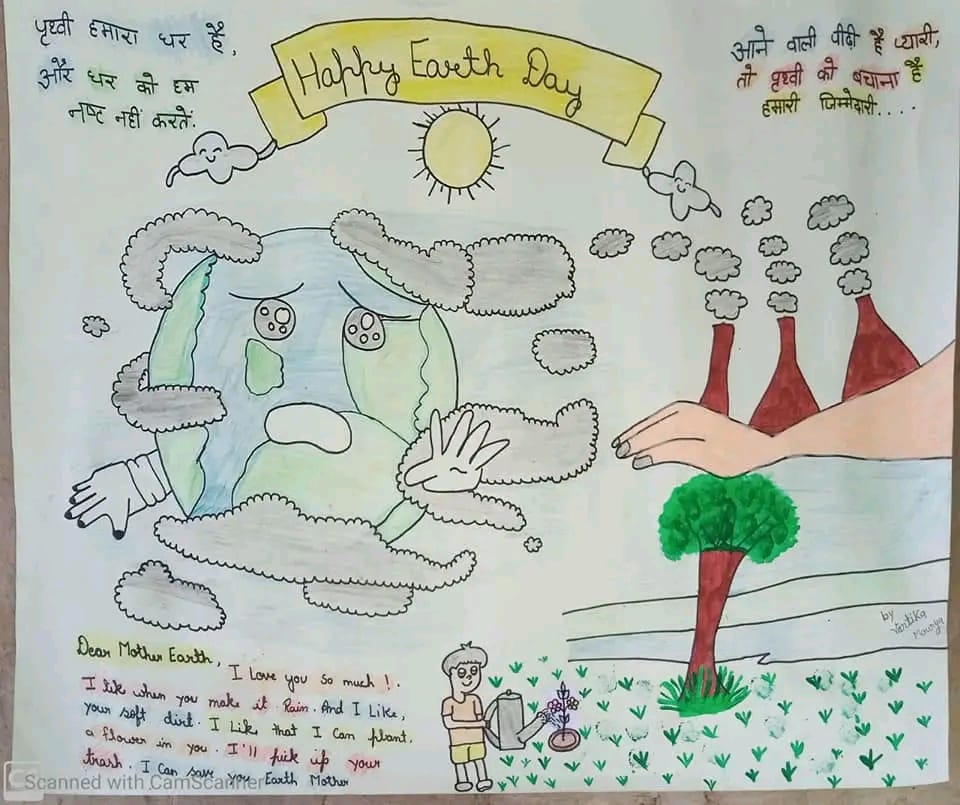 पृथ्वी हमारा घर है,
और घर को हम
नष्ट नहीं करतें.
Happy Earth Day
आने वाली पीढ़ी है प्यारी,
तो पृथ्वी को बचाना है
हमारी जिम्मेदारी....
by
Vartika
Mourya
Dear Mother Earth, I Love you so much !.
I lik when you make it Rain. And I Like,
your soft dirt. I Like that I Can plant,
a flower in you. I'll pick up your
trash. I Can save you Earth Mother
CS Scanned with CamScanner